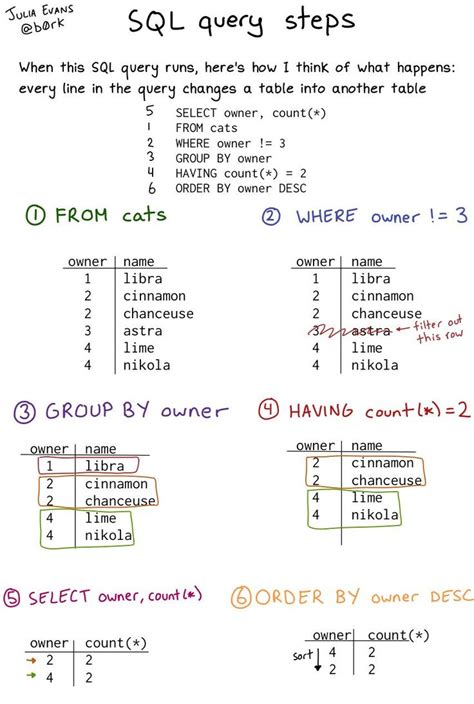 JULIA EVANS
@b0rk
SQL query steps
When this SQL query runs, here's how I think of what happens:
every line in the query changes a table into another table
5 SELECT owner, count(*)
1 FROM cats
2 WHERE owner != 3
3 GROUP BY owner
4 HAVING count(*) = 2
6 ORDER BY owner DESC
① FROM cats
owner name
1 libra
2 cinnamon
2 chanceuse
3 astra
4 lime
4 nikola
② WHERE owner != 3
owner name
1 libra
2 cinnamon
2 chanceuse
3 astra ← filter out
this row
4 lime
4 nikola
③ GROUP BY owner
owner name
1 libra
2 cinnamon
2 chanceuse
4 lime
4 nikola
④ HAVING count(*)=2
owner name
2 cinnamon
2 chanceuse
4 lime
4 nikola
⑤ SELECT owner, count(*)
owner count(*)
→ 2 2
→ 4 2
⑥ ORDER BY owner DESC
owner count(*)
sort ↓ 4 2
2 2